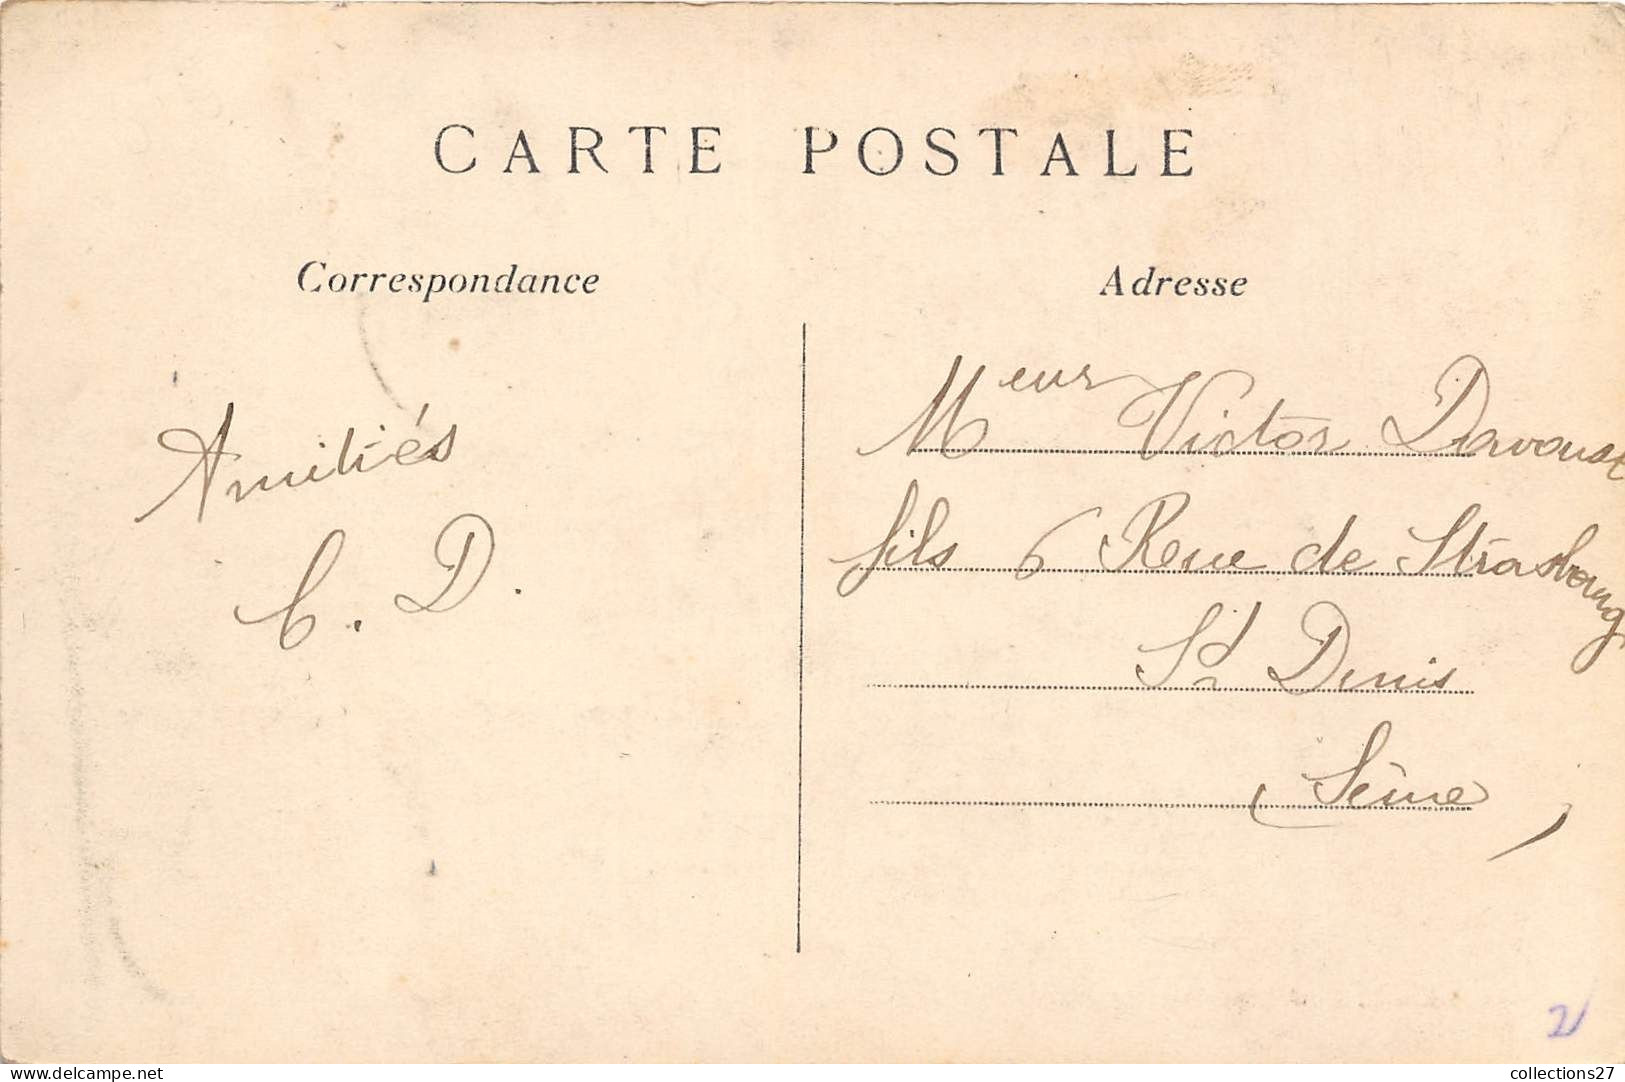 CARTE POSTALE
Correspondance
Adresse
Amitiés
C. D.
Meur Victor Davoust
fils 6 Rue de Strasbourg
St Denis
Seine
2
delcampe.net
collections27